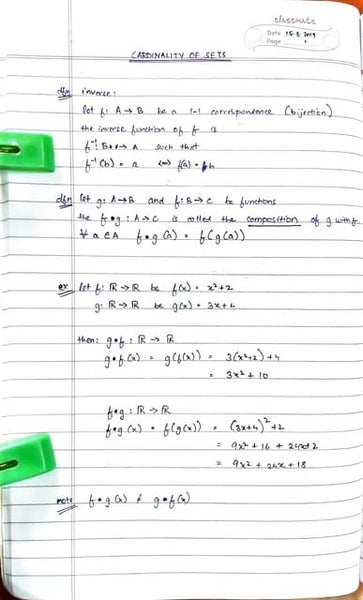 classmate
Date 15.5.2019
Page 1
CARDINALITY OF SETS
dfn inverse:
let f: A → B be a 1-1 correspondence (bijection)
the inverse function of f is
f⁻¹: B → A such that
f⁻¹(b) = a ⟺ f(a) = b
dfn let g: A→B and f: B→C be functions
the f∘g: A→C is called the composition of g with f.
∀ a ∈ A f∘g(a) = f(g(a))
ex let f: ℝ → ℝ be f(x) = x²+2
g: ℝ → ℝ be g(x) = 3x+4
then: g∘f: ℝ → ℝ
g∘f(x) = g(f(x)) = 3(x²+2)+4
= 3x² + 10
f∘g: ℝ → ℝ
f∘g(x) = f(g(x)) = (3x+4)²+2
= 9x² + 16 + 24x+2
= 9x² + 24x + 18
note f∘g(x) ≠ g∘f(x)